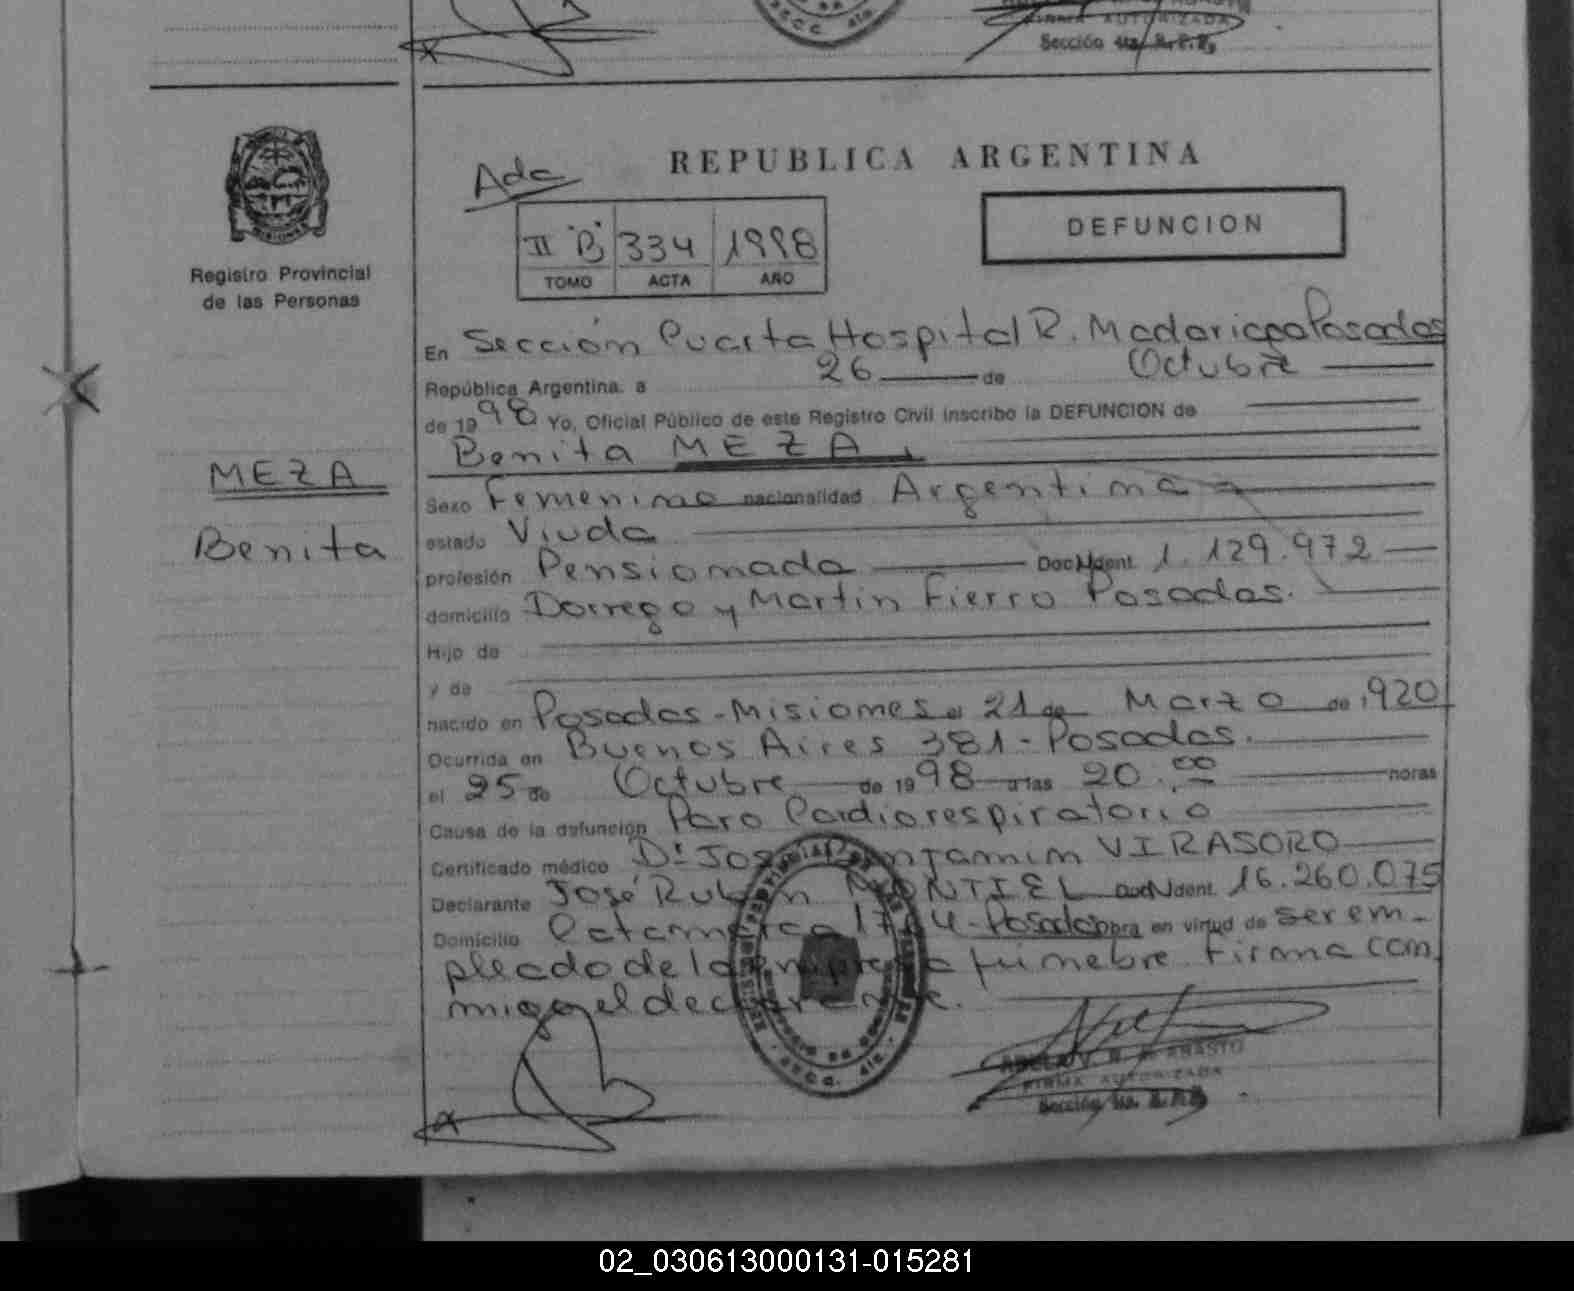 FIRMA AUTORIZADA
Sección 4ta. R.P.P.
REPUBLICA ARGENTINA
Ada
DEFUNCION
II "B" 334 1998
TOMO ACTA AÑO
Registro Provincial
de las Personas
En Sección Cuarta Hospital R. Madariaga Posadas
República Argentina. a 26 de Octubre
de 1998 Yo, Oficial Público de este Registro Civil inscribo la DEFUNCION de
Benita MEZA.
MEZA
Benita
Sexo Femenino nacionalidad Argentina
estado Viuda
profesión Pensionada Doc. Ident. 1.129.972
domicilio Dorrego y Martin Fierro Posadas.
Hijo de
y de
nacido en Posadas - Misiones el 21 de Marzo de 1920
Ocurrida en Buenos Aires 381 - Posadas.
el 25 de Octubre de 1998 a las 20.00 horas
Causa de la defunción Paro Cardiorespiratorio
Certificado médico Dr. José Benjamin VIRASORO
Declarante José Ruben MONTIEL Doc. Ident. 16.260.075
Domicilio Catamarca Posadas obra en virtud de ser em-
pleado de la empresa fúnebre. Firma con-
migo el declarante.
FIRMA AUTORIZADA
Sección 4ta. R.P.P.
02_030613000131-015281